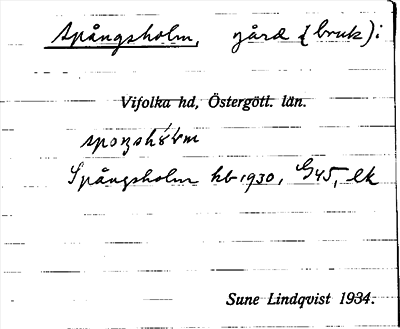 Spångsholm, gård (bruk):
Vifolka hd, Östergötl. län.
Spångsholm kb 1930, G45, ek
Sune Lindqvist 1934.